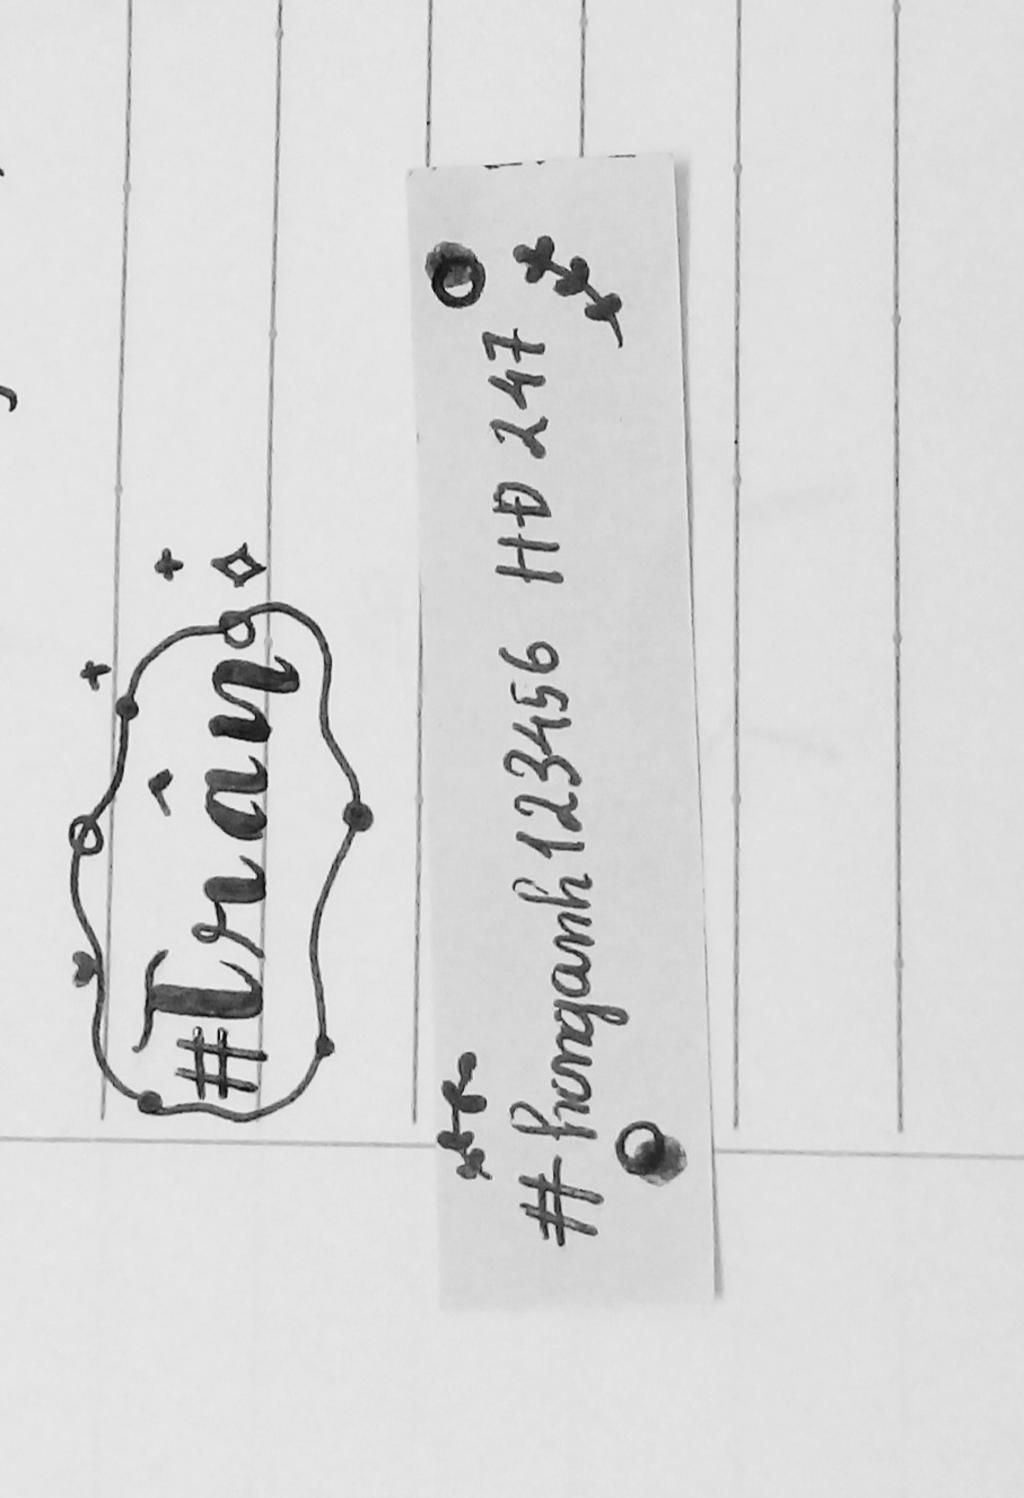 #Trân
#honganh123456 HĐ 247